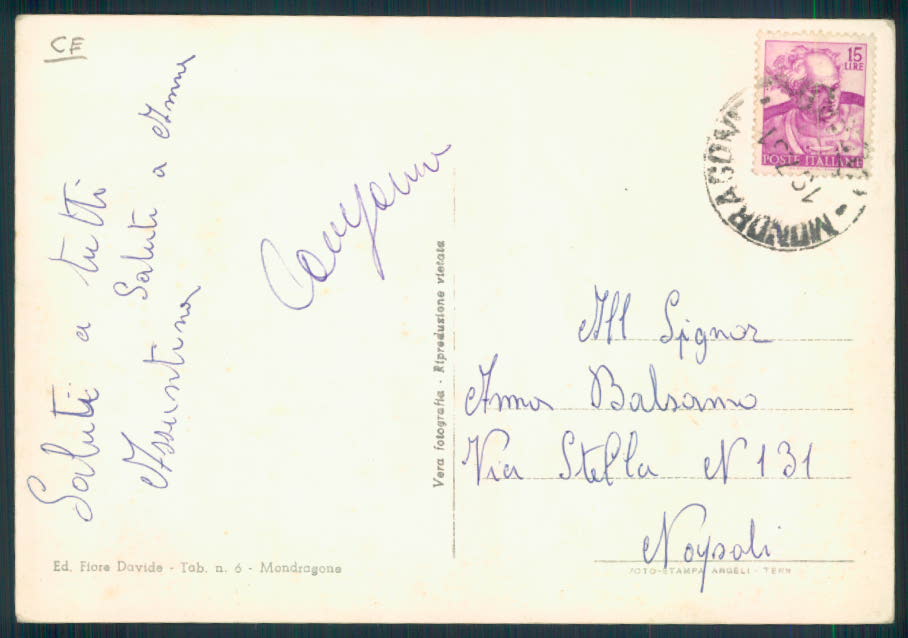 CE
Saluti a tutti
Saluti a Anna
Assuntina
15
LIRE
POSTE ITALIANE
MONDRAGONE
All Signor
Anna Balsamo
Via Stella N 131
Napoli
Vera fotografia - Riproduzione vietata
Ed. Fiore Davide - Tab. n. 6 - Mondragone
FOTO-STAMPA ANGELI - TERNI